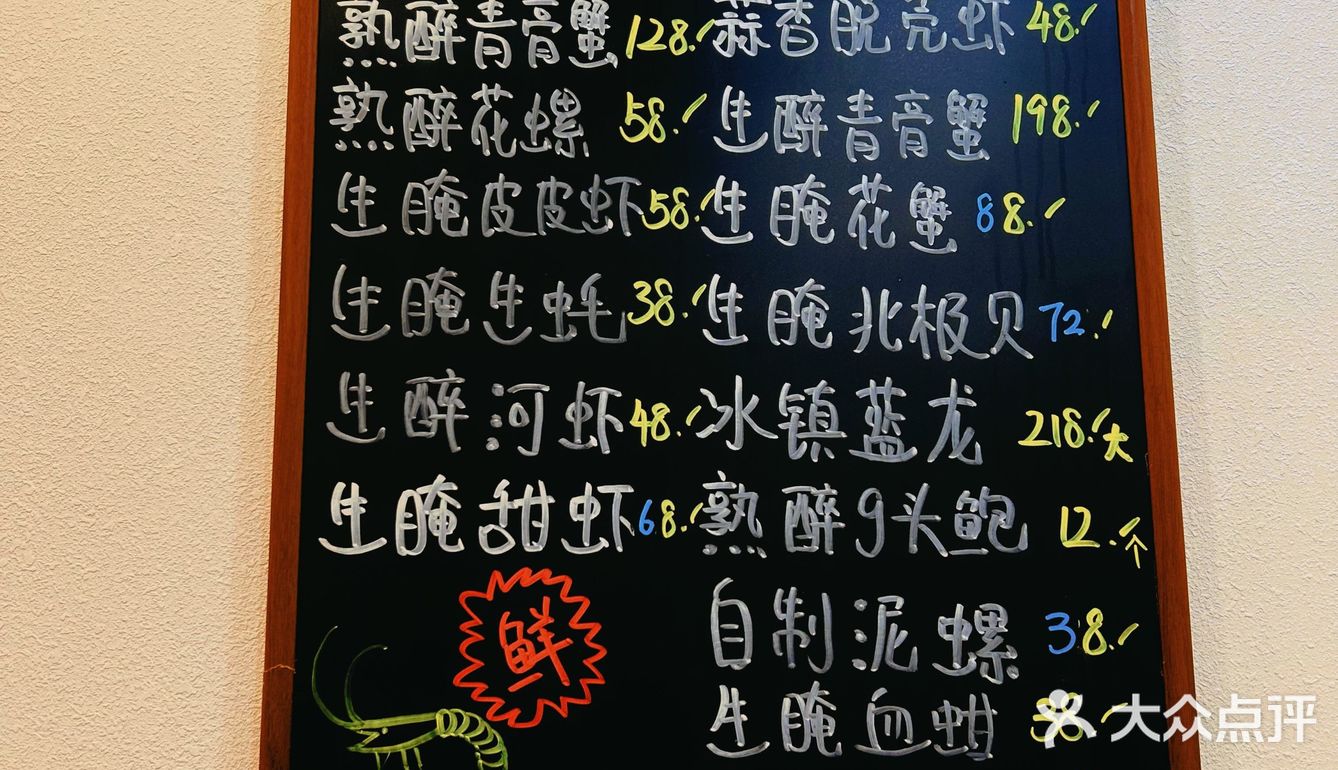 熟醉青膏蟹 128.
蒜香脱壳虾 48.
熟醉花螺 58.
生醉青膏蟹 198.
生腌皮皮虾 58.
生腌花蟹 88.
生腌生蚝 38.
生腌北极贝 72.
生醉河虾 48.
冰镇蓝龙 218.大
生腌甜虾 68.
熟醉9头鲍 12.个
鲜
自制泥螺 38.
生腌血蚶
大众点评